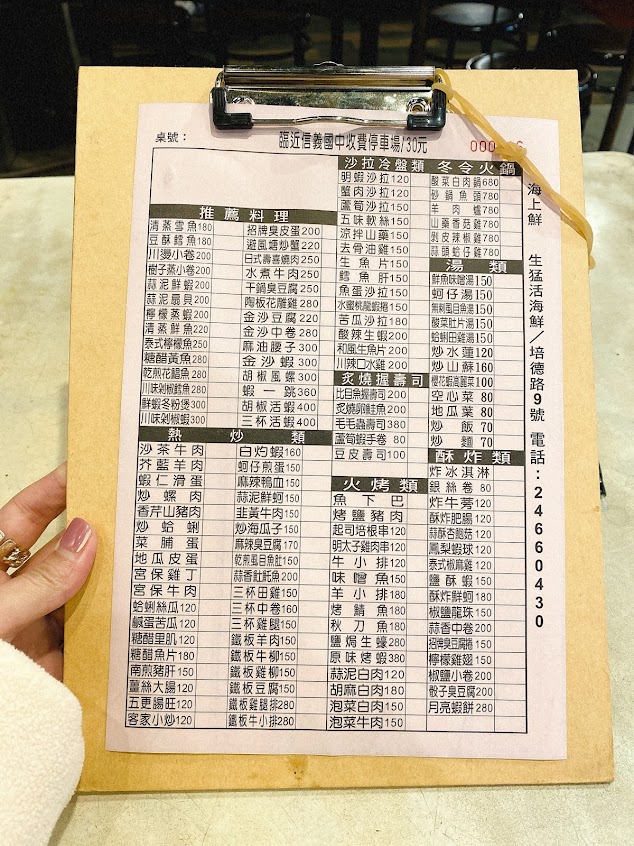 桌號：
臨近信義國中收費停車場/30元
推薦料理
清蒸雪魚180
豆酥鱈魚180
川燙小卷200
樹子蒸小卷200
蒜泥鮮蝦200
蒜泥扇貝200
檸檬蒸蝦200
清蒸鮮魚220
泰式檸檬魚250
糖醋黃魚280
乾煎花鯧魚280
川味剁椒鱈魚280
鮮蝦冬粉煲300
川味剁椒蝦300
招牌臭皮蛋200
避風塘炒蟹220
日式壽喜燒肉250
水煮牛肉250
干鍋臭豆腐250
陶板花雕雞280
金沙豆腐220
金沙中卷280
麻油腰子300
金沙蝦300
胡椒風螺300
蝦一跳360
胡椒活蝦400
三杯活蝦400
熱炒類
沙茶牛肉
芥藍羊肉
蝦仁滑蛋
炒螺肉
香芹山豬肉
炒蛤蜊
菜脯蛋
地瓜皮蛋
宮保雞丁
宮保牛肉
蛤蜊絲瓜120
鹹蛋苦瓜120
糖醋里肌120
糖醋魚片180
南煎豬肝150
薑絲大腸120
五更腸旺120
客家小炒120
白灼蝦160
蚵仔煎蛋150
麻辣鴨血150
蒜泥鮮蚵150
韭黃牛肉150
炒海瓜子150
麻辣臭豆腐170
乾煎虱目魚肚150
蒜香魟魠魚200
三杯田雞150
三杯中卷160
三杯雞腿150
鐵板羊肉150
鐵板牛柳150
鐵板雞柳150
鐵板豆腐150
鐵板雞腿排280
鐵板牛小排280
沙拉冷盤類
明蝦沙拉120
蟹肉沙拉120
蘆筍沙拉150
五味軟絲150
涼拌山藥150
去骨油雞150
生魚片150
鱈魚肝150
魚蛋沙拉150
水蜜桃龍蝦捲150
苦瓜沙拉180
酸辣生蝦200
和風生魚片200
川辣口水雞200
炙燒握壽司
比目魚握壽司200
炙燒卵鮭魚200
毛毛蟲壽司380
蘆筍蝦手卷80
豆皮壽司100
火烤類
魚下巴
烤鹽豬肉
起司培根串120
明太子雞肉串120
牛小排120
味噌魚150
羊小排180
烤鯖魚180
秋刀魚180
鹽焗生蠔280
原味烤蝦380
蒜泥白肉120
胡麻白肉180
泡菜白肉150
泡菜牛肉150
冬令火鍋
酸菜白肉鍋680
砂鍋魚頭780
羊肉爐780
山藥香菇雞780
剝皮辣椒雞780
蒜頭蛤仔雞780
湯類
鮮魚味噌湯150
蚵仔湯150
無刺虱目魚湯150
酸菜肚片湯150
蛤蜊田雞湯150
炒水蓮120
炒山蘇160
櫻花蝦高麗菜100
空心菜80
地瓜葉80
炒飯70
炒麵70
酥炸類
炸冰淇淋
銀絲卷80
炸牛蒡120
酥炸肥腸120
蒜酥杏鮑菇120
鳳梨蝦球120
泰式椒麻雞120
鹽酥蝦150
酥炸鮮蚵180
椒鹽龍珠150
蒜香中卷200
招牌臭豆腐捲150
檸檬雞翅150
椒鹽小卷200
骰子臭豆腐200
月亮蝦餅280
海上鮮 生猛活海鮮／培德路9號 電話：24660430